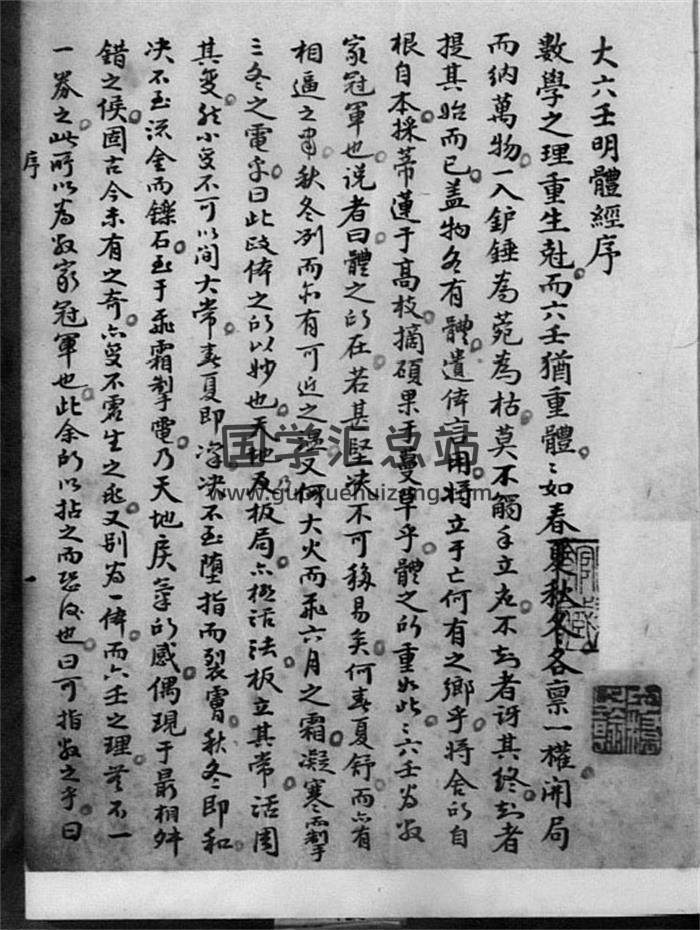 大六壬明體經序
數學之理重生尅而六壬猶重體〻如春夏秋冬各禀一權開局
而納萬物一入鈩錘為菀為枯莫不觸手立應不知者訝其終知者
提其始而已盖物各有體遺体言用將立于亡何有之鄉乎將舍所自
根自本採蒂蓮于高枝摘碩果于蔓草乎體之所重如此〻六壬為数
家冠軍也说者曰體之所在若甚堅决不可移易矣何春夏舒而亦有
相逼之秋冬冽而亦有可近之又何大火而飛六月之霜凝寒而掣
三冬之電乎曰此改体之所以妙也天地乃板局亦極活法板立其常活周
其变然小变不可以间大常春夏即决不至墮指而裂膚秋冬即和
决不至流金而鑠石至于飛霜掣電乃天地戾氣所感偶現于最相舛
錯之候固古今未有之奇亦变不雹生之又别為一体而六壬之理
一券之此所以為数家冠軍也此余所以拈之而也曰可指数之乎曰
序
国学汇总站
www.guoxuehuizong.com